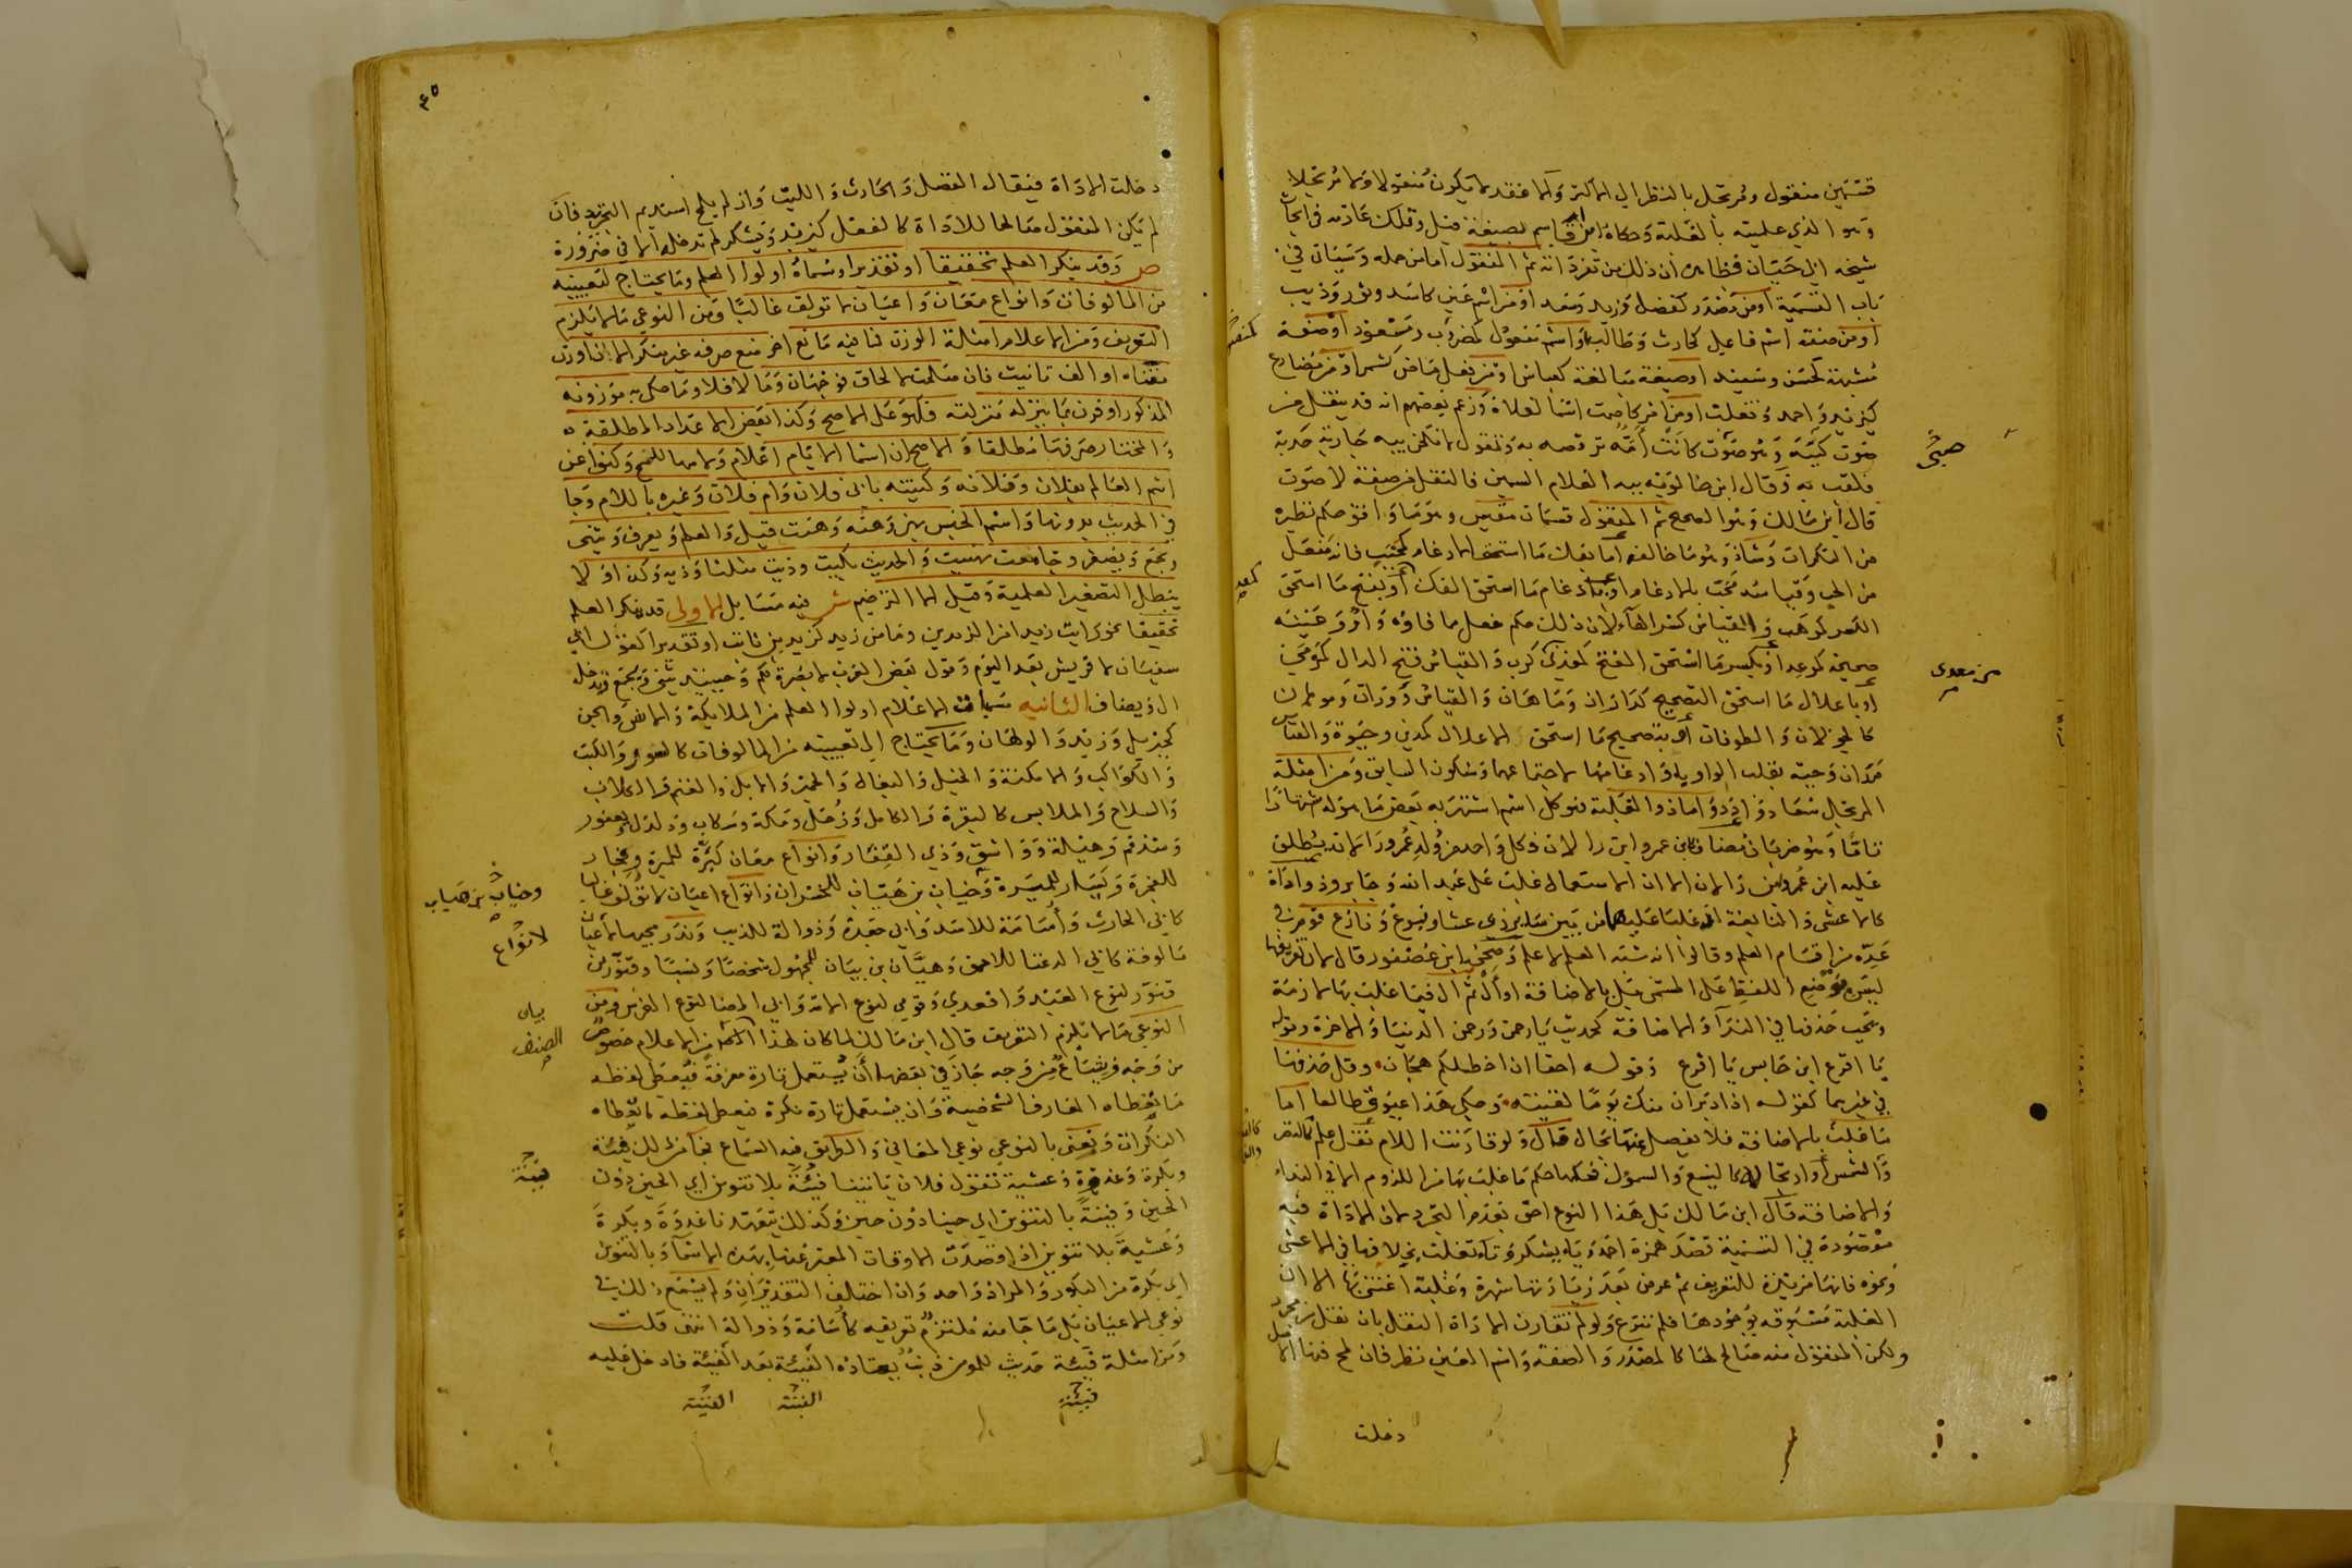 قسمين منقول ومرتجل بالنظر الى الاكثر والا فقد لا يكون منقولا ولا مرتجلا
وهو الذي علميته بالغلبة
شيخه ابي حيان ان ذلك من تفرداته ثم المنقول اما من جملة وسياتي في
باب التسمية او من مصدر كفضل وزيد وسعد او من اسم عين كاسد وثور وذيب
او من صفة اسم فاعل كحارث وطالب او اسم مفعول كمضروب ومسعود او صفة
مشبهة كحسن وسعيد او صيغة مبالغة كعباس او من فعل ماض كشمر او من مضارع
كيزيد واحمد وتغلب او من امر كاصمت اسما لفلاة وزعم بعضهم انه قد ينقل من
صوت كببه وهو صوت كانت امه ترقصه به وتقول لانكحن ببه جارية خدبة
فلقب به وقال ابن خالويه ببه الغلام السمين فالنقل من صفة لا صوت
قال ابن مالك وهو الصحيح ثم المنقول قسمان مقيس وهو ما وافق حكم نظيره
من النكرات وشاذ وهو ما خالفه اما بفك ما استحق الادغام كمحبب فانه مفعل
من الحب وقياسه محب بالادغام او بادغام ما استحق الفك او بفتح ما استحق
الكسر كموهب والقياس كسر الهاء لان ذلك حكم مفعل مما فاؤه واو وعينه
صحيحة كموعد او بكسر ما استحق الفتح كمعدي كرب والقياس فتح الدال كمرمى
او باعلال ما استحق التصحيح كداران وماهان والقياس دوران وموهان
كالجولان والطوفان او بتصحيح ما استحق الاعلال كمدين وحيوة والقياس
مدان وحية بقلب الواو ياء وادغامها لاجتماعهما وسكون السابق ومن امثلة
المرتجل سعاد وادد اما ذو الغلبة فهو كل اسم اشتهر به بعض ما هو له اشتهارا
تاما وهو ضربان مضاف كابن عمر وابن رالان فكل واحد من ولد عمر ورالان يطلق
عليه ابن عمر وابن رالان الا ان الاستعمال غلب على عبد الله وجابر وذو اداة
كالاعشى والنابغة
عده من اقسام العلم وقالوا انه شبه العلم لا علم وصححه ابن عصفور قال لان تعريفها
ليس بوضع اللفظ على المسمى بل بالاضافة او ال ثم ال فيما غلب بها لازمة
ويجب حذفها في الندا والاضافة كحديث يا رحمن ورحمن الدنيا والاخرة وقوله
يا اقرع ابن حابس يا اقرع وقوله احقا ان اخطلكم هجان وقل حذفها
في غيرهما كقوله اذا دبران منك يوما لقيته وحكى هذا عيوق طالعا اما
ما غلب بالاضافة فلا يفصل عنها بحال قال ولو قارنت اللام نقل علم كالنضر
او ارتجاله كاليسع والسموال فحكمها حكم ما غلب بها من اللزوم الا في النداء
والاضافة قال ابن مالك بل هذا النوع احق بعدم التجرد لان الاداة فيه
مقصودة في التسمية قصد همزة احمد وياء يشكر وتاء تغلب بخلافها في الاعشى
ونحوه فانها مزيدة للتعريف ثم عرض بعد زيادتها شهرة وغلبة اغنى بها الا ان
الغلبة مسبوقة بوجودها فلم تنزع ولو لم تقارن الاداة النقل بان نقل من مجرد
ولكن المنقول منه صالح لها كالمصدر والصفة واسم العين نظر فان لمح فيها الاصل
دخلت
صبحى
من معدى
٤٥
دخلت الاداة فيقال الفضل والحارث والليث وان لم يلمح استديم التجريد فان
لم يكن المنقول صالحا للاداة كالفعل كيزيد ويشكر لم تدخله الا في ضرورة
ص وقد ينكر العلم تحقيقا او تقديرا ومسماه اولوا العلم وما يحتاج لتعيينه
من المالوفات وانواع معان واعيان لا تولف غالبا ومن النوعي ما لا يلزم
التعريف ومن الاعلام امثلة الوزن فما فيه مانع اخر منع صرفه غير منكر الا ذا وزن
منتهاه او الف تانيث فان صلحت لالحاق فوجهان وما لا فلا وما حكي به موزونه
المذكور او قرن بما ينزله منزلته فكهو على الاصح وكذا بعض الاعداد المطلقة
والمختار صرفها مطلقا والاصح ان اسما الايام اعلام ولامها للمح وكنوا عن
اسم العالم بفلان وفلانة وكنيته بابي فلان وام فلان وغيره باللام وجا
في الحديث بدونها واسم الجنس بهن وهنة وهنت قيل والعلم ويعرف ويثنى
ويجمع ويصغر وجامعت بهنيت والحديث بكيت وذيت مثلثا وذيه وكذا او لا
يبطل التصغير العلمية وقيل الا الترخيم ش فيه مسايل الاولى قد ينكر العلم
تحقيقا نحو رايت زيدا من الزيدين وما من زيد كزيد بن ثابت او تقديرا كقول ابي
سفيان لا قريش بعد اليوم وقول بعض العرب لا بصرة لكم وحينئذ يثنى ويجمع وتدخله
ال ويضاف الثانية مسميات الاعلام اولوا العلم من الملايكة والانس والجن
كجبريل وزيد والولهان وما يحتاج الى تعيينه من المالوفات كالسور والكتب
والكواكب والامكنة والخيل والبغال والحمير والابل والغنم والكلاب
والسلاح والملابس كالبقرة والكامل وزحل ومكة وسكاب ودلدل ويعفور
وشذقم وهيلة وواشق وذي الفقار وانواع معان كبرة للمبرة وفجار
للفجرة ويسار للميسرة وخياب بن هياب للخسران وانواع اعيان لا تولف غالبا
كابي الحارث واسامة للاسد وابي جعدة وذوالة للذيب وندر مجيها لاعيان
مالوفة كابي الدغفا للاحمق وهيان بن بيان للمجهول شخصا ونسبا وقنور بن
قنور لنوع العبد واقعدي وقومي لنوع الامة وابي المضا لنوع الفرس ومن
النوعي ما لا يلزم التعريف قال ابن مالك لما كان لهذا الصنف من الاعلام خصوص
من وجه وشياع من وجه جاز في بعضها ان يستعمل تارة معرفة فيعطى لفظه
ما يعطاه المعارف الشخصية وان يستعمل تارة نكرة فيعطى لفظه ما يعطاه
النكرات ونعني بالنوعي نوعي المعاني والطريق فيه السماع فجا من ذلك فينة
وبكرة وغدوة وعشية تقول فلان ياتينا فينة بلا تنوين اي الحين دون
الحين وفينة بالتنوين اي حينا دون حين وكذلك يتعهدنا غدوة وبكرة
وعشية بلا تنوين اذا قصدت الاوقات المعبر عنها بهذه الاسما وبالتنوين
اي بكرة من البكور والمراد واحد وان اختلف التقديران ولم يسمع ذلك في
نوعي الاعيان بل ما جا منه ملتزم تعريفه كاسامة وذوالة انتهى قلت
ومن امثلة فينة حديث للمومن ذنب يعتاده الفينة بعد الفينة فادخل عليه
وخياب بن هياب
لانواع
بيان
الصنف
فينة
فينة
الفينة
الفينة